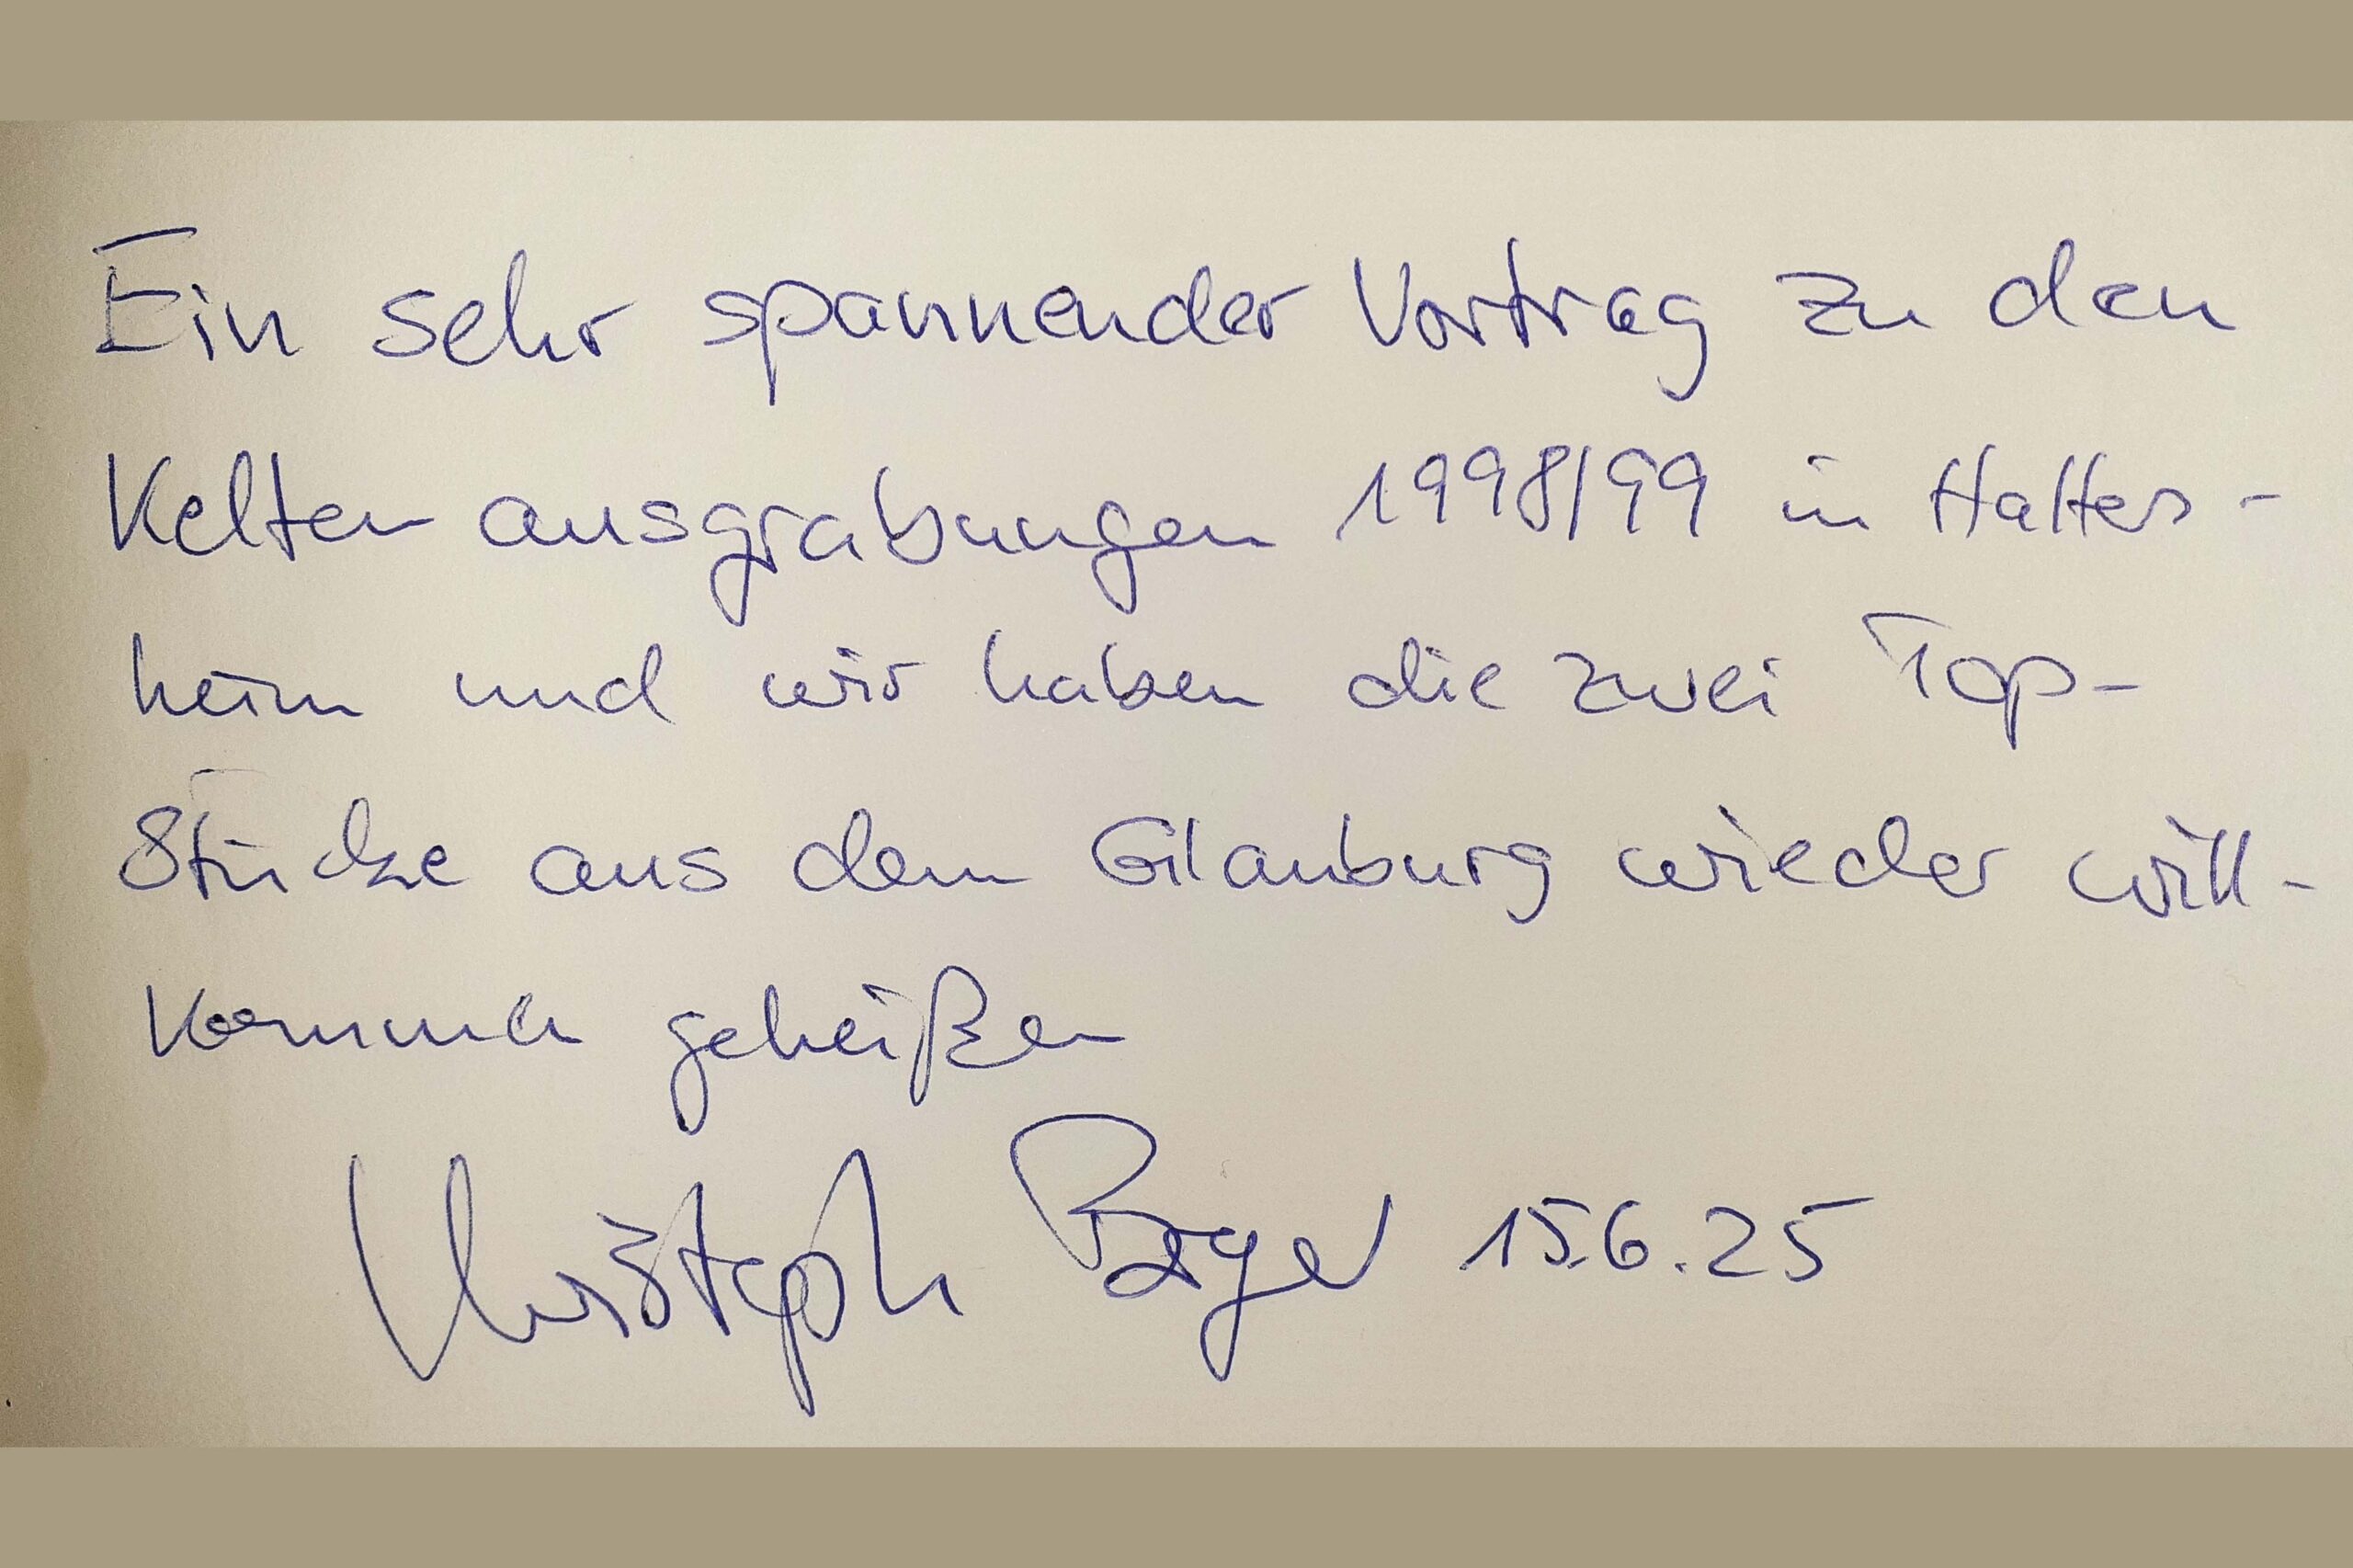 Ein sehr spannender Vortrag zu den
Kelten ausgrabungen 1998/99 in Hatters-
heim und wir haben die zwei Top-
Stücke aus dem Glauburg wieder will-
kommen geheißen
Christoph 15.6.25